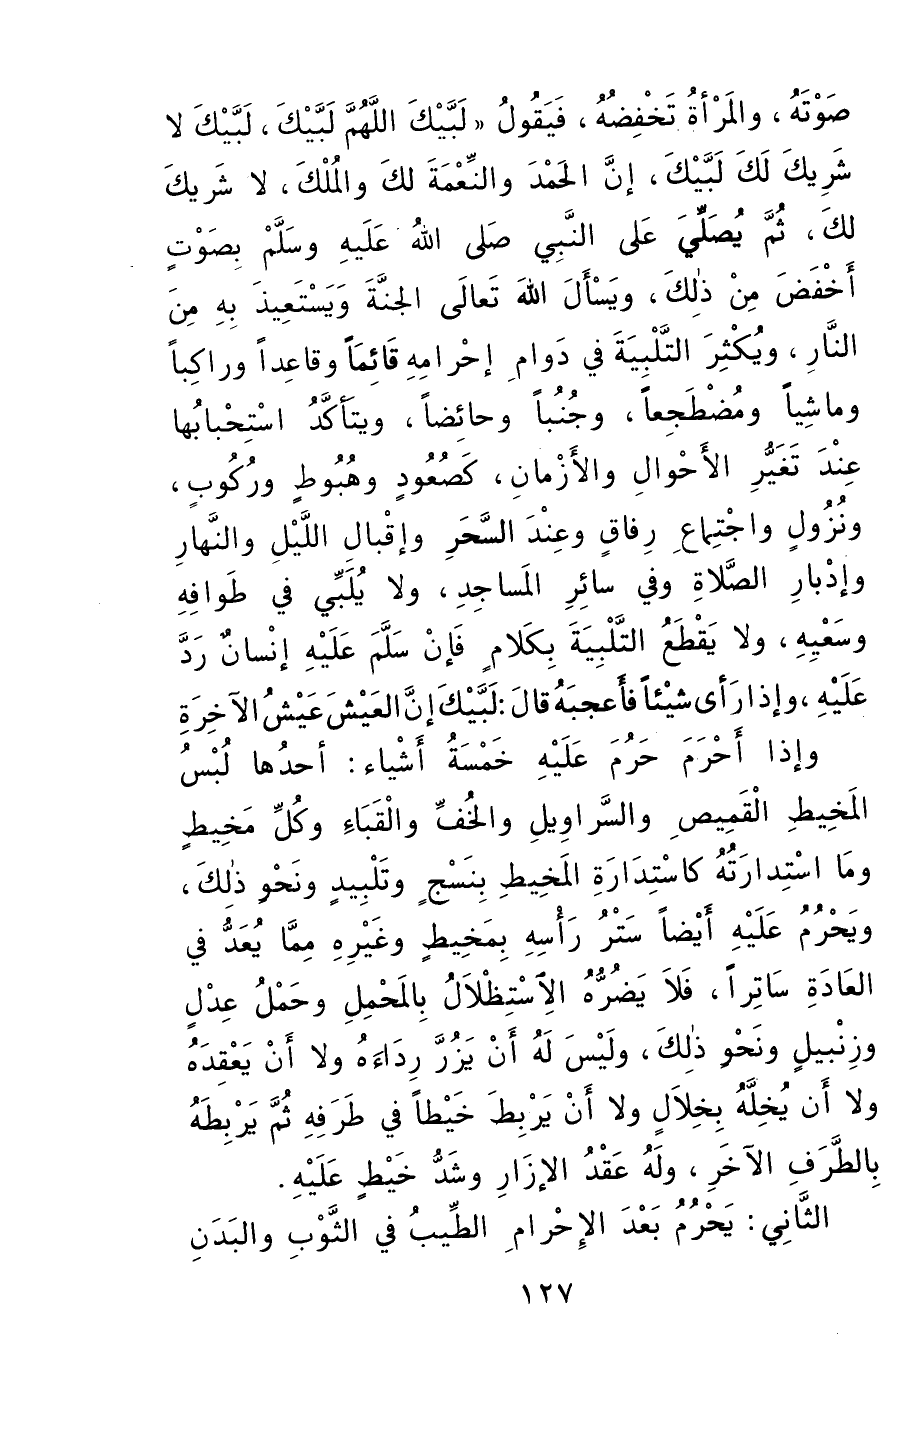 صَوْتَهُ ، والمَرْأةُ تَخْفِضُهُ ، فَيَقُولُ « لَبَّيْكَ اللَّهُمَّ لَبَّيْكَ ، لَبَّيْكَ لا
شَرِيكَ لَكَ لَبَّيْكَ ، إنَّ الحَمْدَ والنِّعْمَةَ لكَ والمُلْكَ ، لا شَرِيكَ
لكَ ، ثُمَّ يُصَلِّيَ عَلى النَّبِي صَلى اللهُ عَلَيهِ وسَلَّمْ بِصَوْتٍ
أَخْفَضَ مِنْ ذٰلِكَ ، ويَسْأَلَ اللهَ تَعالَى الجنَّةَ وَيَسْتَعِيذَ بِهِ مِنَ
النَّارِ ، ويُكْثِرَ التَّلْبِيَةَ في دَوامِ إحْرامِهِ قَائِمَاً وقاعِداً وراكِباً
وماشِياً ومُضْطَجِعاً ، وجُنُباً وحائِضاً ، ويتَأكَّدُ اسْتِحْبابُها
عِنْدَ تَغَيُّرِ الأَحْوالِ والأَزْمانِ ، كَصُعُودٍ وهُبُوطٍ ورُكُوبٍ ،
ونُزُولٍ واجْتِماعِ رِفاقٍ وعِنْدَ السَّحَرِ وإقْبالِ اللَّيْلِ والنَّهارِ
وإدْبارِ الصَّلاةِ وفي سائِرِ المَساجِدِ ، ولا يُلَبِّي في طَوافِهِ
وسَعْيِهِ ، ولا يَقْطَعُ التَّلْبِيَةَ بِكَلامٍ فَإنْ سَلَّمَ عَلَيْهِ إنْسانٌ رَدَّ
عَلَيْهِ ، وإذا رَأى شيْئاً فأَعجبَهُ قالَ : لَبَّيْكَ إنَّ العَيْشَ عَيْشُ الآخِرَةِ
وإذا أَحْرَمَ حَرُمَ عَلَيْهِ خَمْسَةُ أَشْياء : أحدُها لُبْسُ
المَخِيطِ الْقَمِيصِ والسَّراوِيلِ والخُفِّ والْقَبَاءِ وكُلِّ مَخِيطٍ
ومَا اسْتِدارَتُهُ كاسْتِدَارَةِ المَخِيطِ بِنَسْجٍ وتَلْبِيدٍ ونَحْوِ ذٰلِكَ ،
ويَحْرُمُ عَلَيْهِ أَيْضاً سَتْرُ رَأْسِهِ بِمَخِيطٍ وغَيْرِهِ مِمَّا يُعَدُّ في
العَادَةِ سَاتِراً ، فَلاَ يَضُرُّهُ الِاسْتِظْلاَلُ بِالمَحْمِلِ وحَمْلُ عِدْلٍ
وزِنْبيلٍ ونَحْوِ ذٰلِكَ ، ولَيْسَ لَهُ أَنْ يَزُرَّ رِدَاءَهُ ولا أَنْ يَعْقِدَهُ
ولا أَن يُخِلَّهُ بِخِلَالٍ ولا أَنْ يَرْبِطَ خَيْطاً في طَرَفِهِ ثُمَّ يَرْبِطَهُ
بِالطَّرَفِ الآخَرِ ، ولَهُ عَقْدُ الإزَارِ وشَدُّ خَيْطٍ عَلَيْهِ .
الثَّانِي : يَحْرُمُ بَعْدَ الإِحْرامِ الطِّيبُ في الثَّوْبِ والبَدَنِ
١٢٧